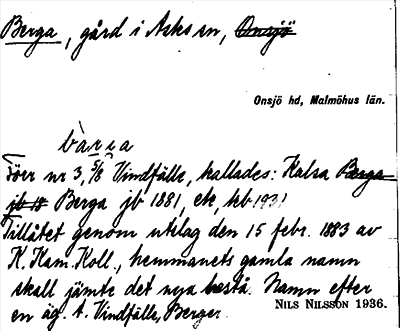 Berga, gård i Asks sn, Onsjö
Onsjö hd, Malmöhus län.
bærᴈa
Förr nr 3, 5/8 Vindfälle, kallades: Kalsa Berga
jb 18 Berga jb 1881, etc, kb 1931
Tillåtet genom utslag den 15 febr. 1883 av
K. Kam. Koll., hemmanets gamla namn
skall jämte det nya bestå. Namn efter
en äg. t. Vindfälle, Berger.
NILS NILSSON 1936.